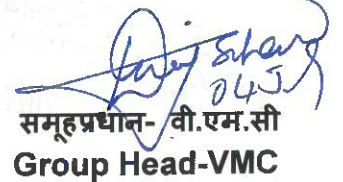 समूहप्रधान- वी.एम.सी
Group Head-VMC